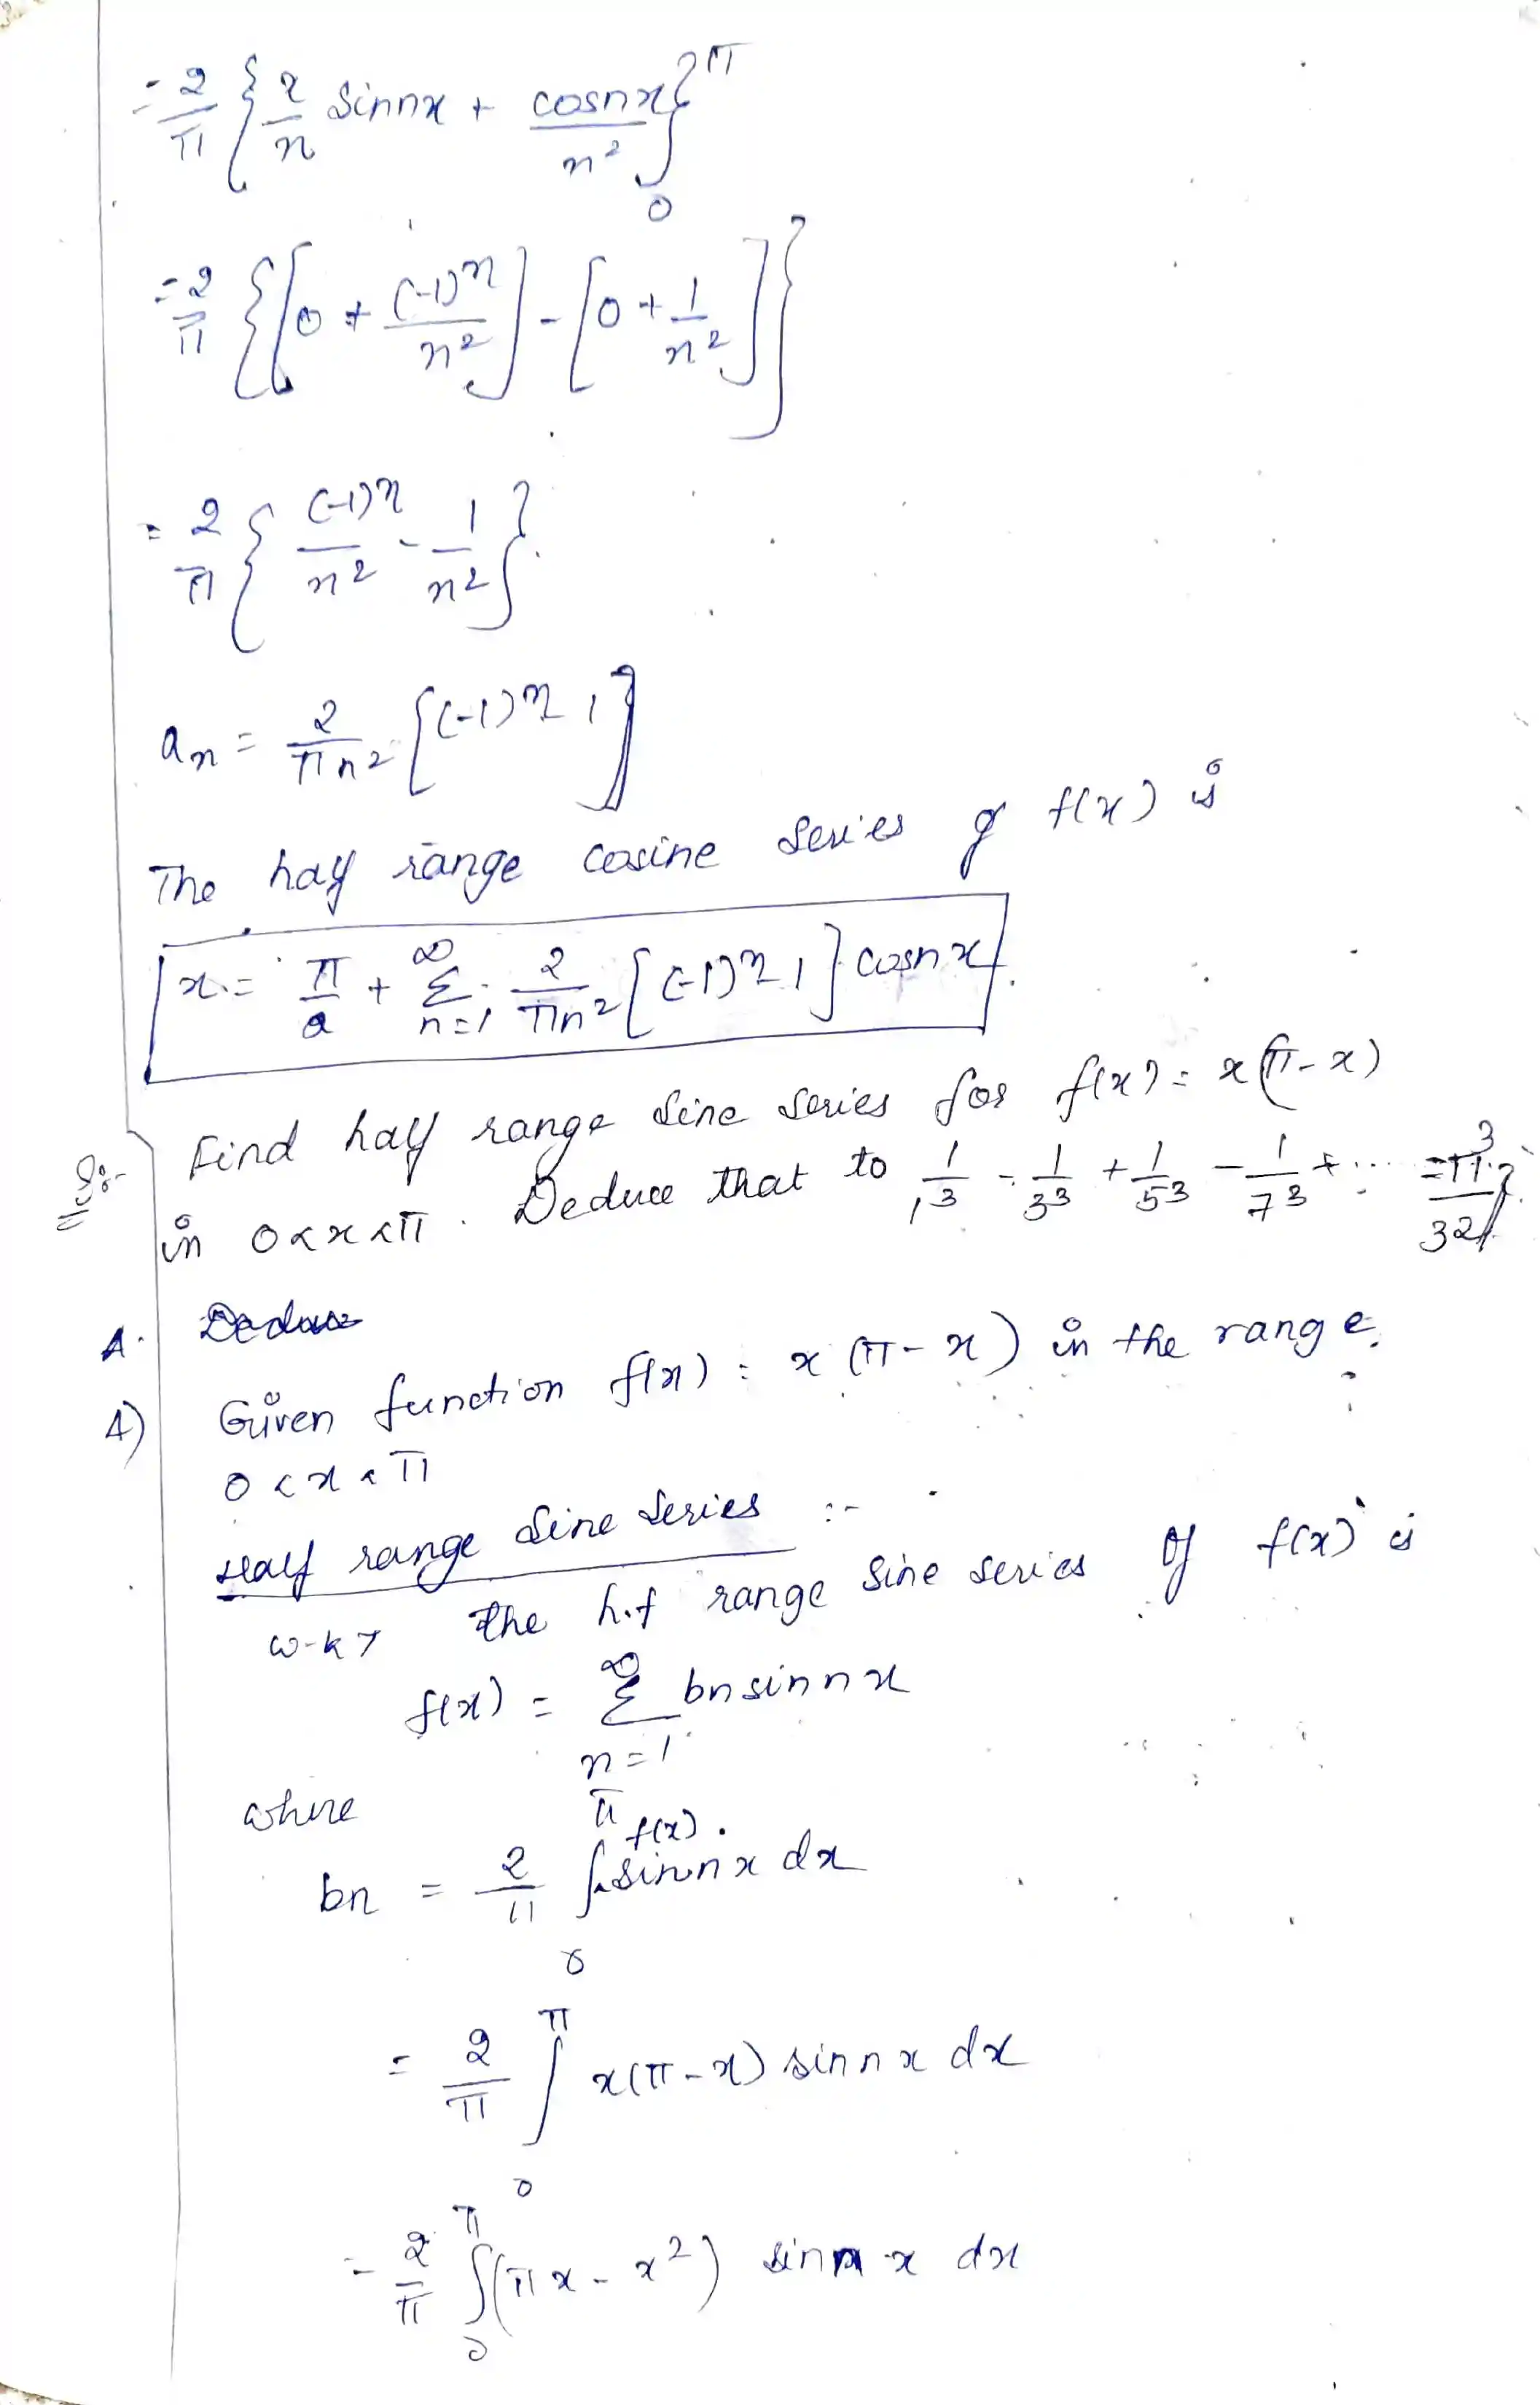 = 2/π { x/n Sinnx + cosnx/n² }π0
= 2/π { [0 + (-1)n/n²] - [0 + 1/n²] }
= 2/π { (-1)n/n² - 1/n² }
an = 2/πn² [(-1)n 1]
The half range cosine series of f(x) is
x = π/2 + ∞Σn=1 2/πn² [(-1)n 1] cosnx.
Find half range sine series for f(x) = x(π-x)
in 0<x<π. Deduce that to 1/1³ - 1/3³ + 1/5³ - 1/7³ + ... = π³/32.
A. Deduce
A) Given function f(x) = x(π-x) in the range
0<x<π
Half range sine series :-
w-k-T the h.f range sine series of f(x) is
f(x) = ∞Σn=1 bn sinnx
where
bn = 2/π ∫π0 f(x). sinnx dx
= 2/π ∫π0 x(π-x) sinnx dx
= 2/π ∫π0 (πx-x²) sinnx dx